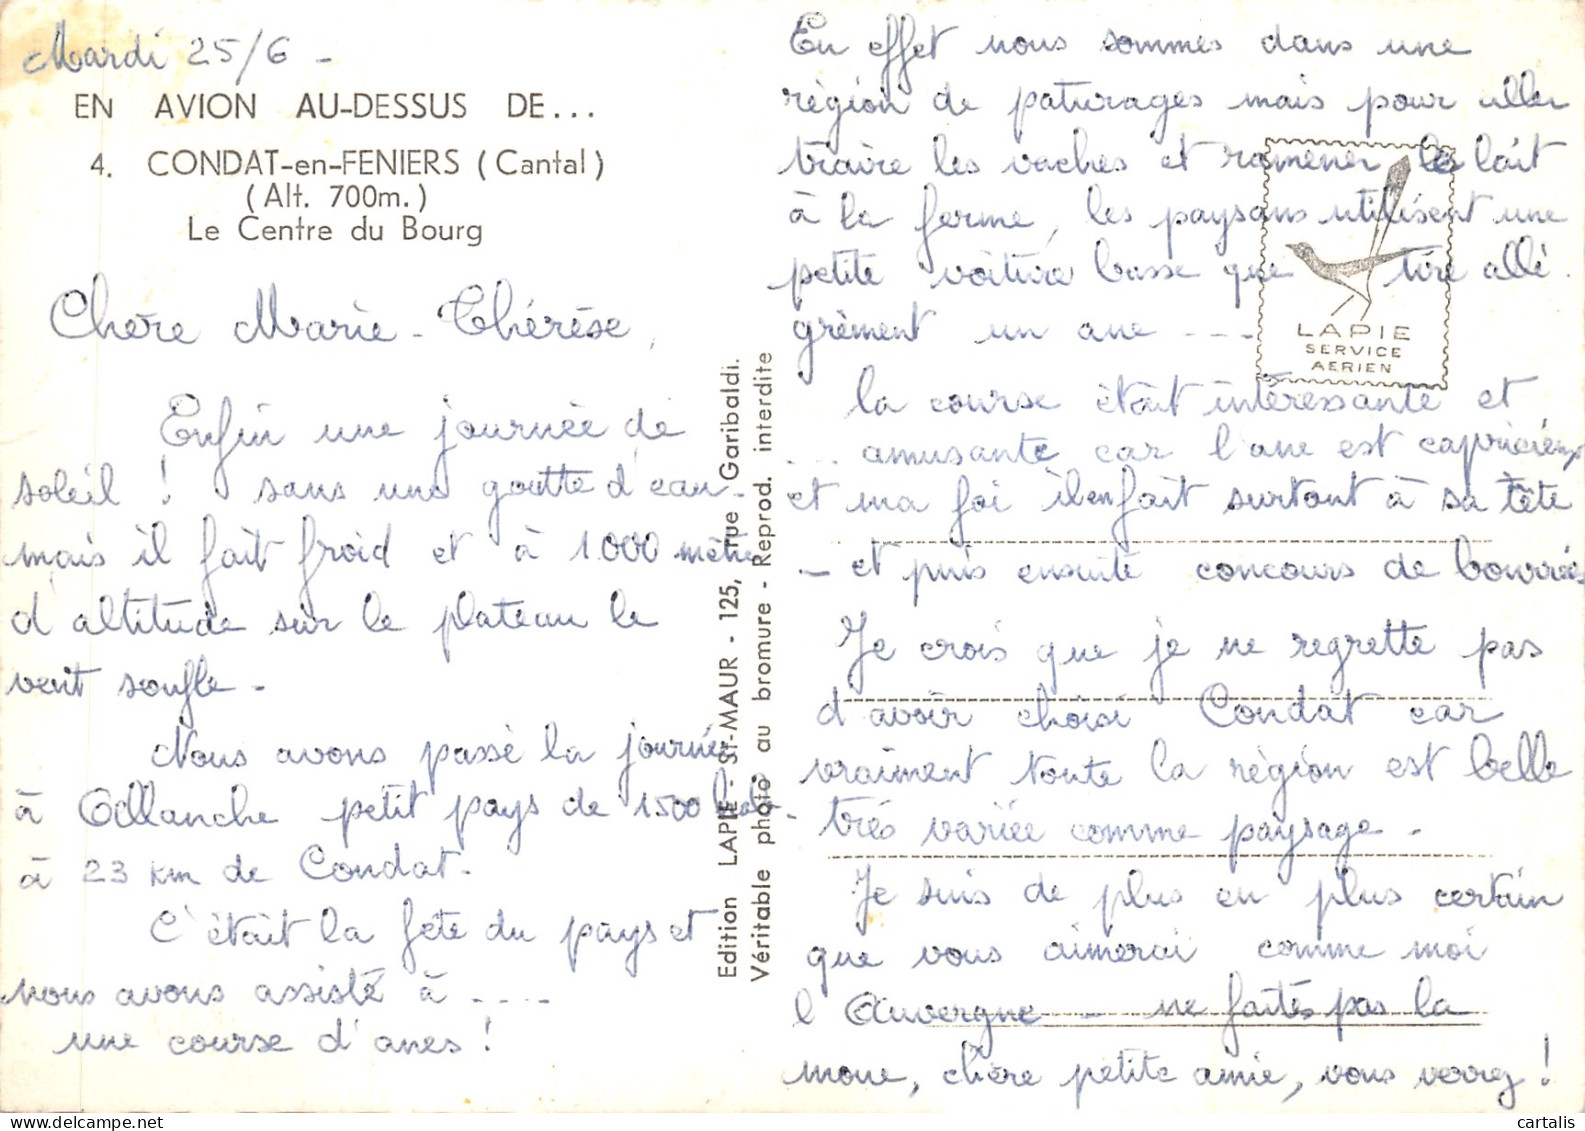 Mardi 25/6 -
EN AVION AU-DESSUS DE...
4. CONDAT-en-FENIERS (Cantal)
(Alt. 700m.)
Le Centre du Bourg
Chère Marie-Thérèse,
Enfin une journée de
soleil ! sans une goutte d'eau -
mais il fait froid et à 1000 mètres
d'altitude sur le plateau le
vent souffle -
Nous avons passé la journée
à Allanche petit pays de 1500 habts
à 23 km de Condat -
C'était la fête du pays et
nous avons assisté à ....
une course d'anes !
Edition LAPIE - St-MAUR - 125, rue Garibaldi.
Véritable photo au bromure - Reprod. interdite
En effet nous sommes dans une
région de paturages mais pour aller
traire les vaches et ramener le lait
à la ferme, les paysans utilisent une
petite voiture basse que tire allé
grèment un ane ....
LAPIE
SERVICE
AERIEN
la course était intéressante et
... amusante car l'ane est capricieux
et ma foi il en fait surtout à sa tête
- et puis ensuite concours de bourrées
Je crois que je ne regrette pas
d'avoir choisi Condat car
vraiment toute la région est belle
très variée comme paysage -
Je suis de plus en plus certain
que vous aimerai comme moi
l'Auvergne - ne faites pas la
moue, chère petite amie, vous verrez !
cartalis.com